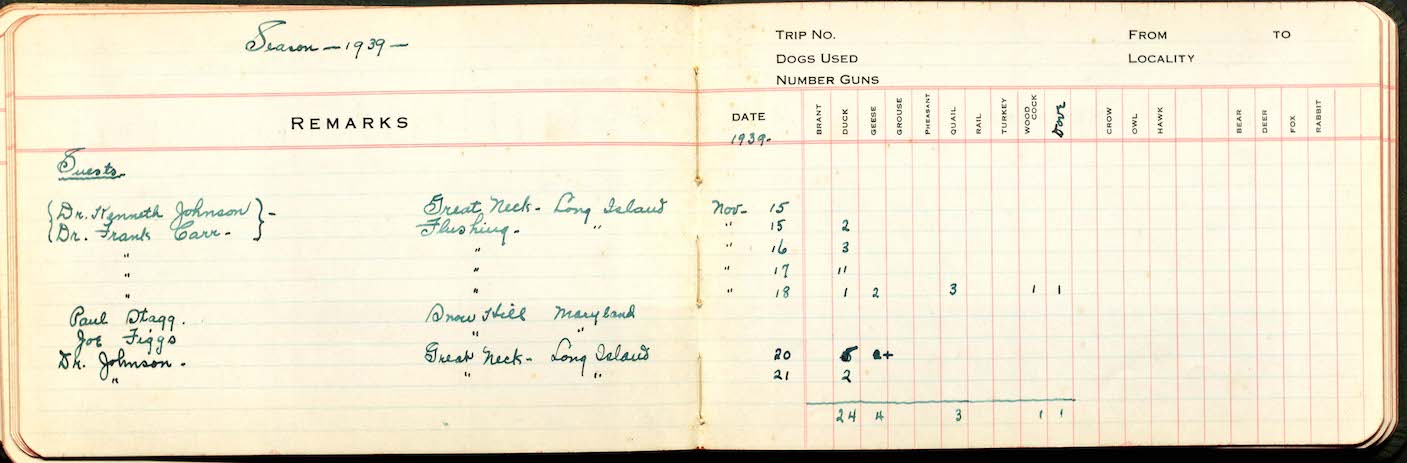 Season — 1939 —
REMARKS
Guests
{Dr. Kenneth Johnson} - Great Neck - Long Island
{Dr. Frank Carr - } Flushing - "
" "
" "
" "
Paul Stagg. Snow Hill Maryland
Joe Figgs " "
Dr. Johnson - Great Neck - Long Island
" " "
TRIP NO. FROM TO
DOGS USED LOCALITY
NUMBER GUNS
DATE BRANT DUCK GEESE GROUSE PHEASANT QUAIL RAIL TURKEY WOOD COCK Dove CROW OWL HAWK BEAR DEER FOX RABBIT
1939-
Nov- 15
" 15 2
" 16 3
" 17 11
" 18 1 2 3 1 1
20 5 2+
21 2
24 4 3 1 1